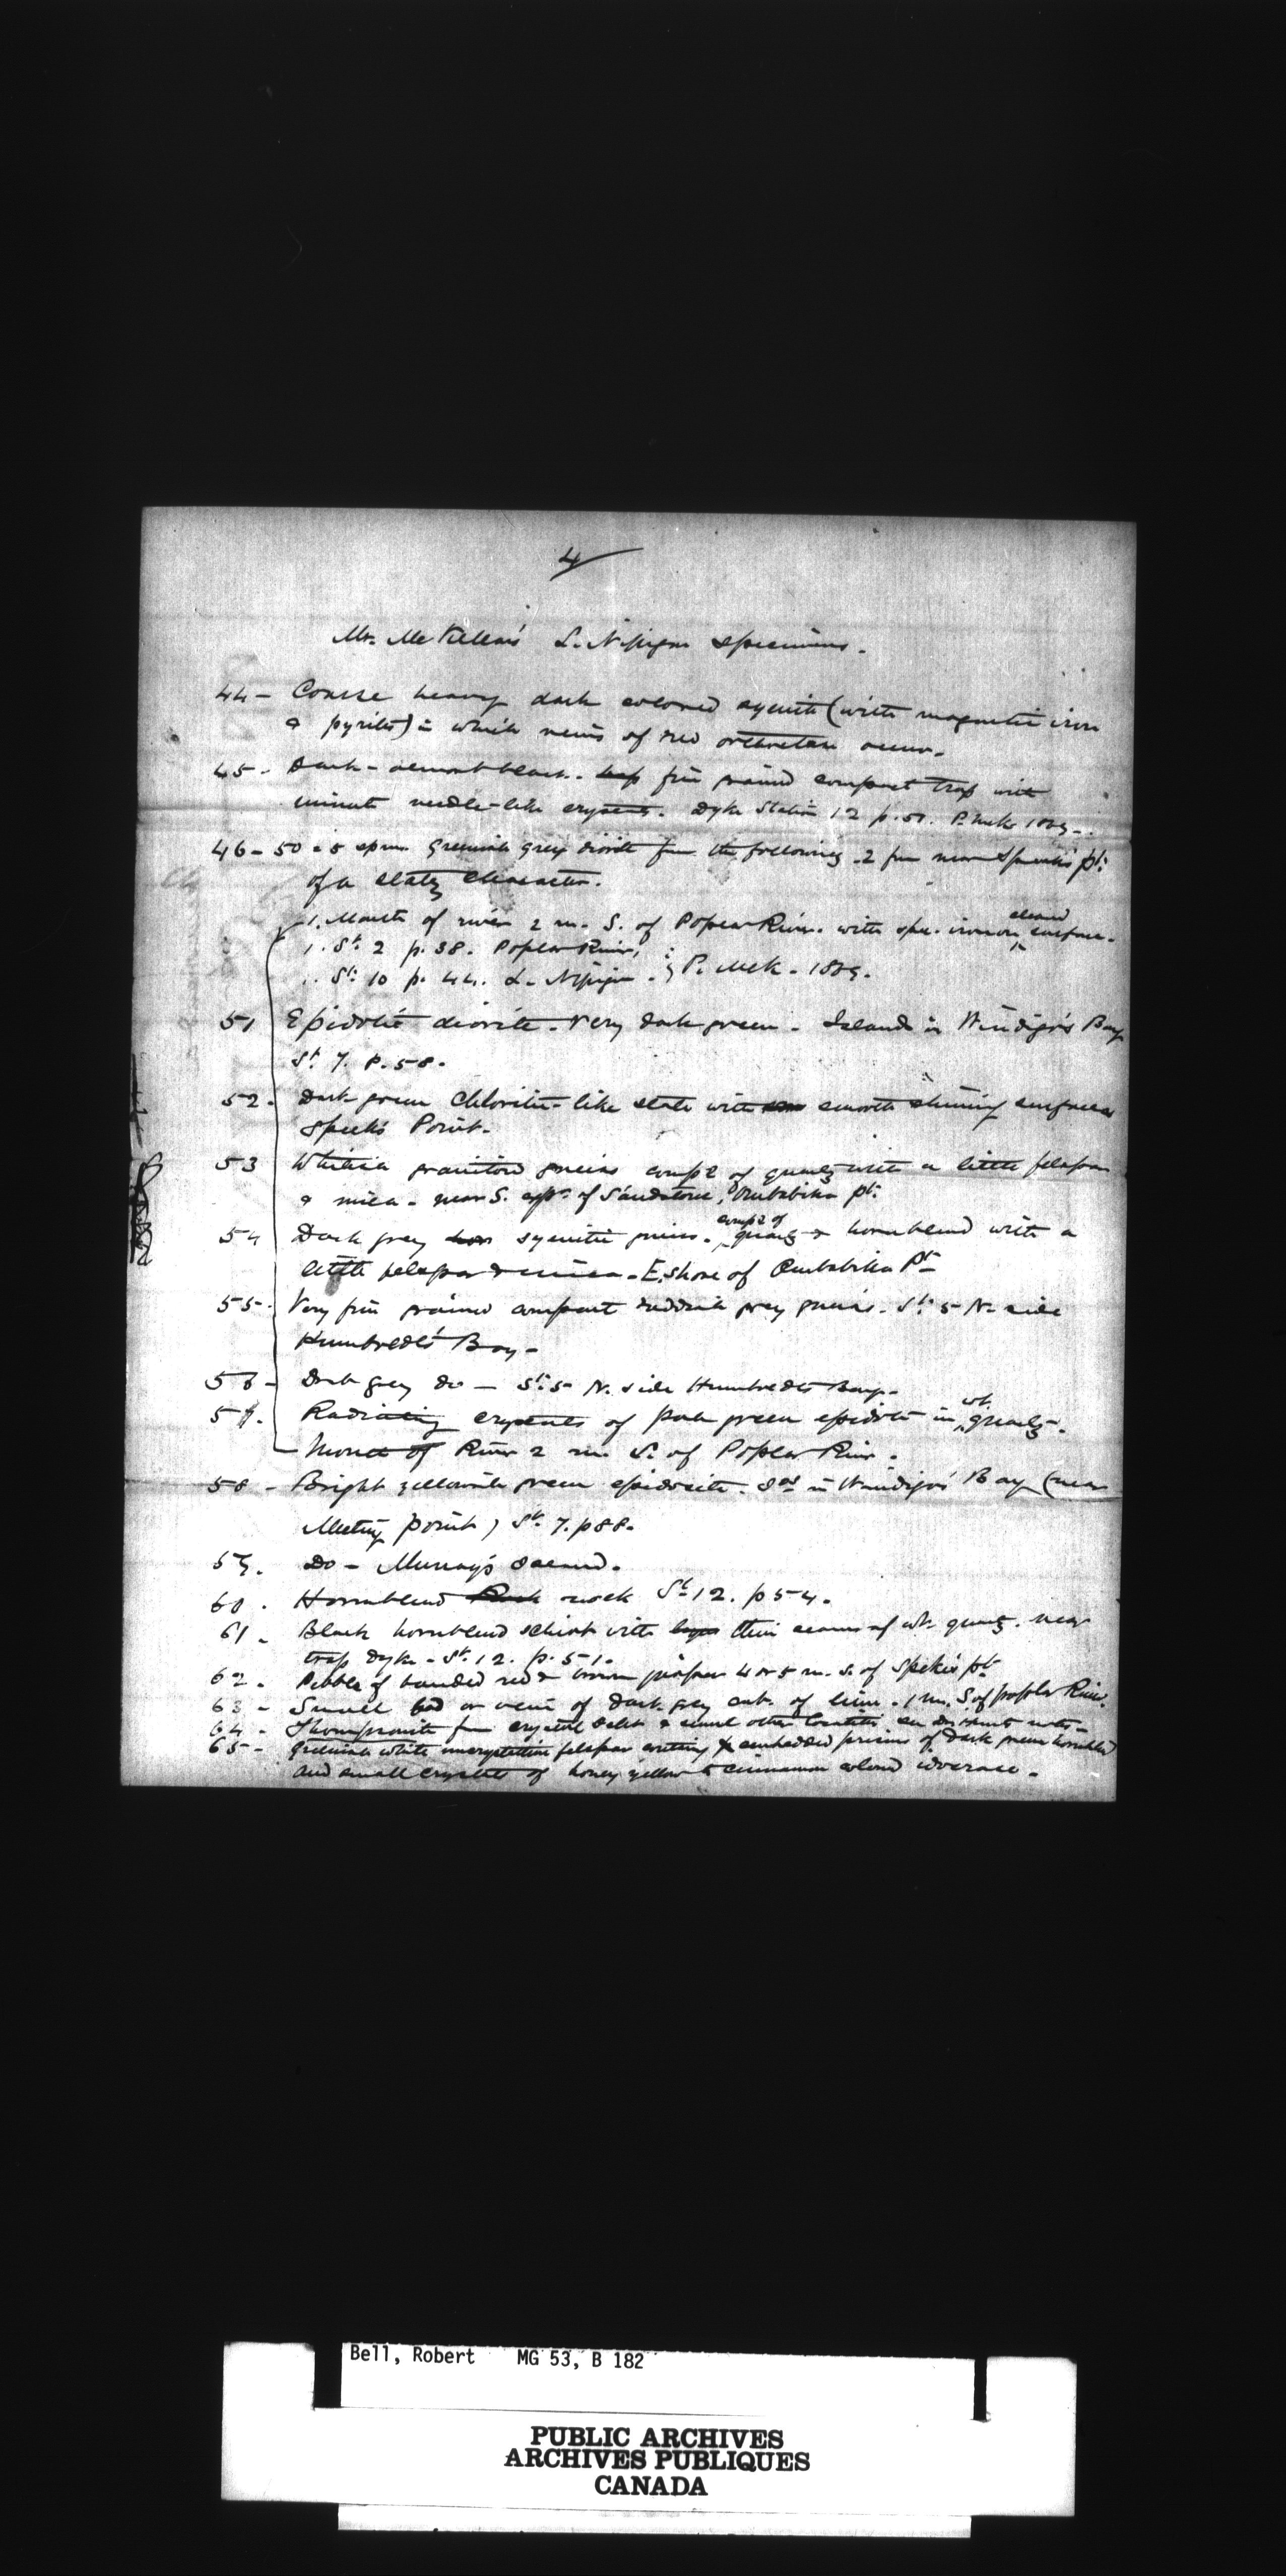 4
Mr. McKellar's L. Nipigon specimens.
44 - Coarse heavy dark colored syenite (with magnetic iron
& pyrites) in which veins of red orthoclase occur.
45 - Dark - almost black - fine grained compact trap with
minute needle-like crystals. Dyke Station 12 p. 51. P. McK. 1869 -
46 - 50 - 5 spms. Greenish grey diorite from the following - 2 from near Speeks pt.
of a slaty character.
1. Mouth of river 2 m. S. of Poplar River. with spec. iron on cleaved surface.
1. St. 2 p. 38. Poplar River,
1. St. 10 p. 44. L. Nipigon. P. McK. 1869.
51 Epidotic diorite. Very dark green. Island in Windigo's Bay
St. 7. p. 58.
52. Dark green Chlorite-like slate with smooth shining surfaces
Speeks Point.
53 Whitish granitoid gneiss comp'd of quartz with a little felspar
& mica - near S. of Sandstone, Ombabika pt.
54 Dark grey syenitic gneiss. comp'd of quartz & hornblend with a
little felspar & mica - E. shore of Ombabika Pt.
55. Very fine grained compact reddish grey gneiss. St. 5 N. side
Humboldt's Bay -
56 - Dark grey do - St. 5 N. side Humboldt's Bay -
57. Radiating crystals of pale green epidote in wh. quartz.
Mouth of River 2 m. S. of Poplar River.
58 - Bright yellowish green epidosite. in Windigo's Bay (near
Meeting point) St. 7. p 58.
59. Do - Murray's Island.
60. Hornblend rock St 12. p 54.
61. Black hornblend schist with thin seams of wh. quartz. near
trap dyke - St. 12. p. 51.
62. Pebble of banded red & brown jasper 4 or 5 m. S. of Speeks pt.
63 - Small bed or vein of dark grey carb. of lime. 1 m. S. of Poplar River.
64 - from crystal & some other localities see notes -
65 - Greenish white felspar embedded prisms of dark green hornblend
and small crystals of honey yellow to cinnamon colored idocrase.
Bell, Robert MG 53, B 182
PUBLIC ARCHIVES
ARCHIVES PUBLIQUES
CANADA